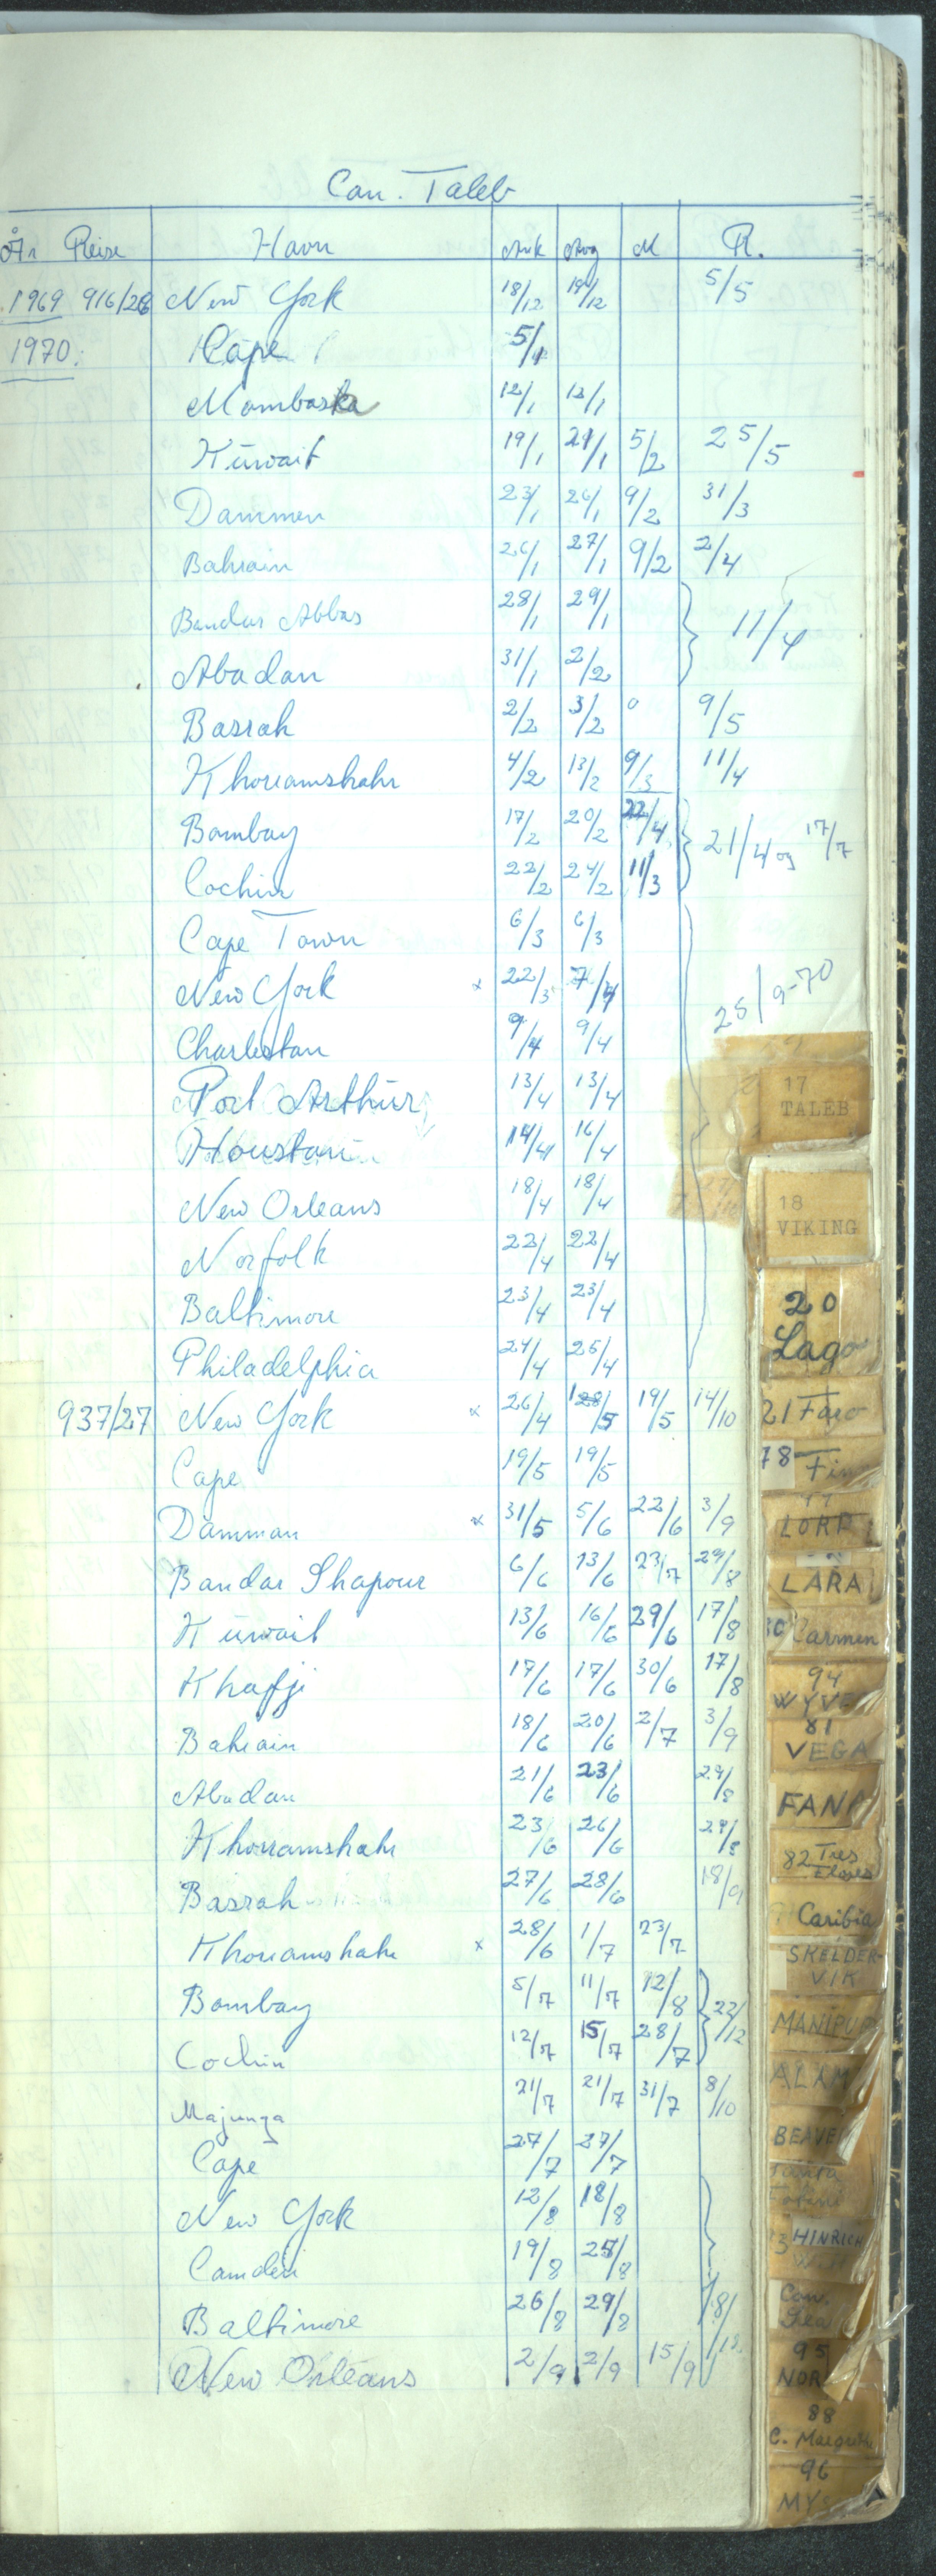 Can. Taleb
År Reise Havn Ank Avg M R.
1969 916/26 New York 18/12 19/12 5/5
1970. Cape 5/1
Mombasa 12/1 13/1
Kuwait 19/1 21/1 5/2 25/5
Dammen 23/1 26/1 9/2 31/3
Bahrain 26/1 27/1 9/2 2/4
Bandar Abbas 28/1 29/1
11/4
Abadan 31/1 2/2
Basrah 2/2 3/2 0 9/5
Khoramshahr 4/2 13/2 9/3 11/4
Bombay 17/2 20/2 22/4
21/4 og 17/7
Cochin 22/2 24/2 11/3
Cape Town 6/3 6/3
New York x 22/3 7/4
25/9-70
Charlestan 9/4 9/4
Port Arthur 13/4 13/4
Houston 14/4 16/4
New Orleans 18/4 18/4
Norfolk 22/4 22/4
Baltimore 23/4 23/4
Philadelphia 24/4 25/4
937/27 New York x 26/4 19/5 14/10
Cape 19/5 19/5
Damman x 31/5 5/6 22/6 3/9
Bandar Shapour 6/6 13/6 23/7 29/8
Kuwait 13/6 16/6 29/6 17/8
Khafji 17/6 17/6 30/6 17/8
Bahrain 18/6 20/6 2/7 3/9
Abadan 21/6 23/6 29/8
Khorramshahr 23/6 26/6 29/8
Basrah 27/6 28/6 18/9
Khoramshahr x 28/6 1/7 23/7
Bombay 5/7 11/7 12/8
22/12
Cochin 12/7 15/7 28/7
Majunga 21/7 21/7 31/7 8/10
Cape 27/7 27/7
New York 12/8 18/8
Camden 19/8 25/8
Baltimore 26/8 29/8
18/12
New Orleans 2/9 2/9 15/9
17
TALEB
18
VIKING
20
Lago
21 Faro
78
LORD
LARA
Carmen
94
81
VEGA
82 Tres
Caribia
SKELDER-
VIK
HINRICH
95
88
C. Margrethe
96